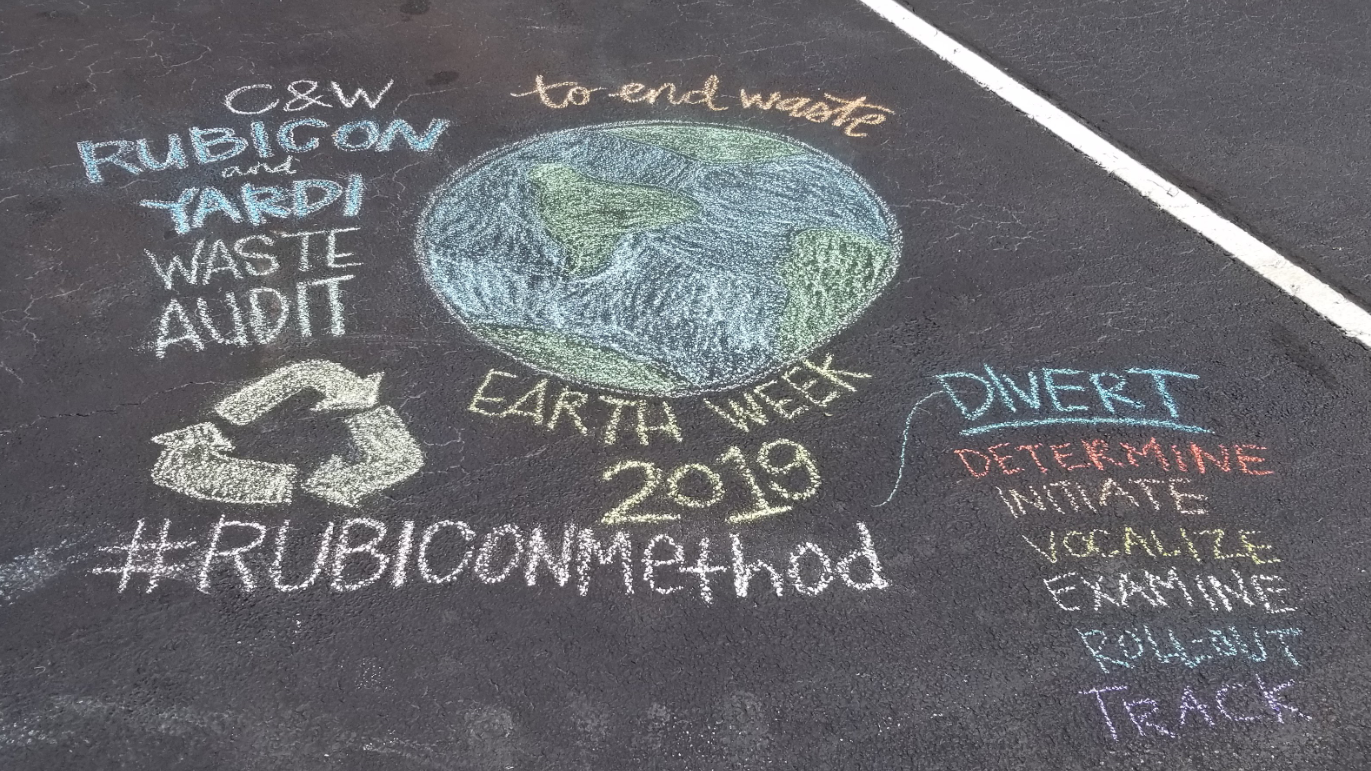 C&W
RUBICON
and
YARDI
WASTE
AUDIT
to end waste
EARTH WEEK
2019
#RUBICONMethod
DIVERT
DETERMINE
INITIATE
VOCALIZE
EXAMINE
ROLL-OUT
TRACK